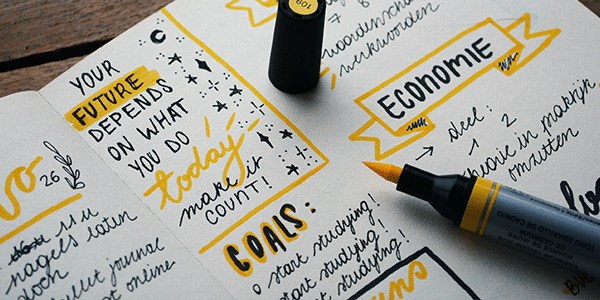 YOUR
FUTURE
DEPENDS
ON WHAT
YOU DO
today
make it
COUNT!
GOALS:
start studying!
start studying!
start studying!
26
nagels laten
bullet journal
online
woordenschat
werkwoorden
ECONOMIE
→ deel:
→ 1 2
theorie in praktijk
omzetten
109